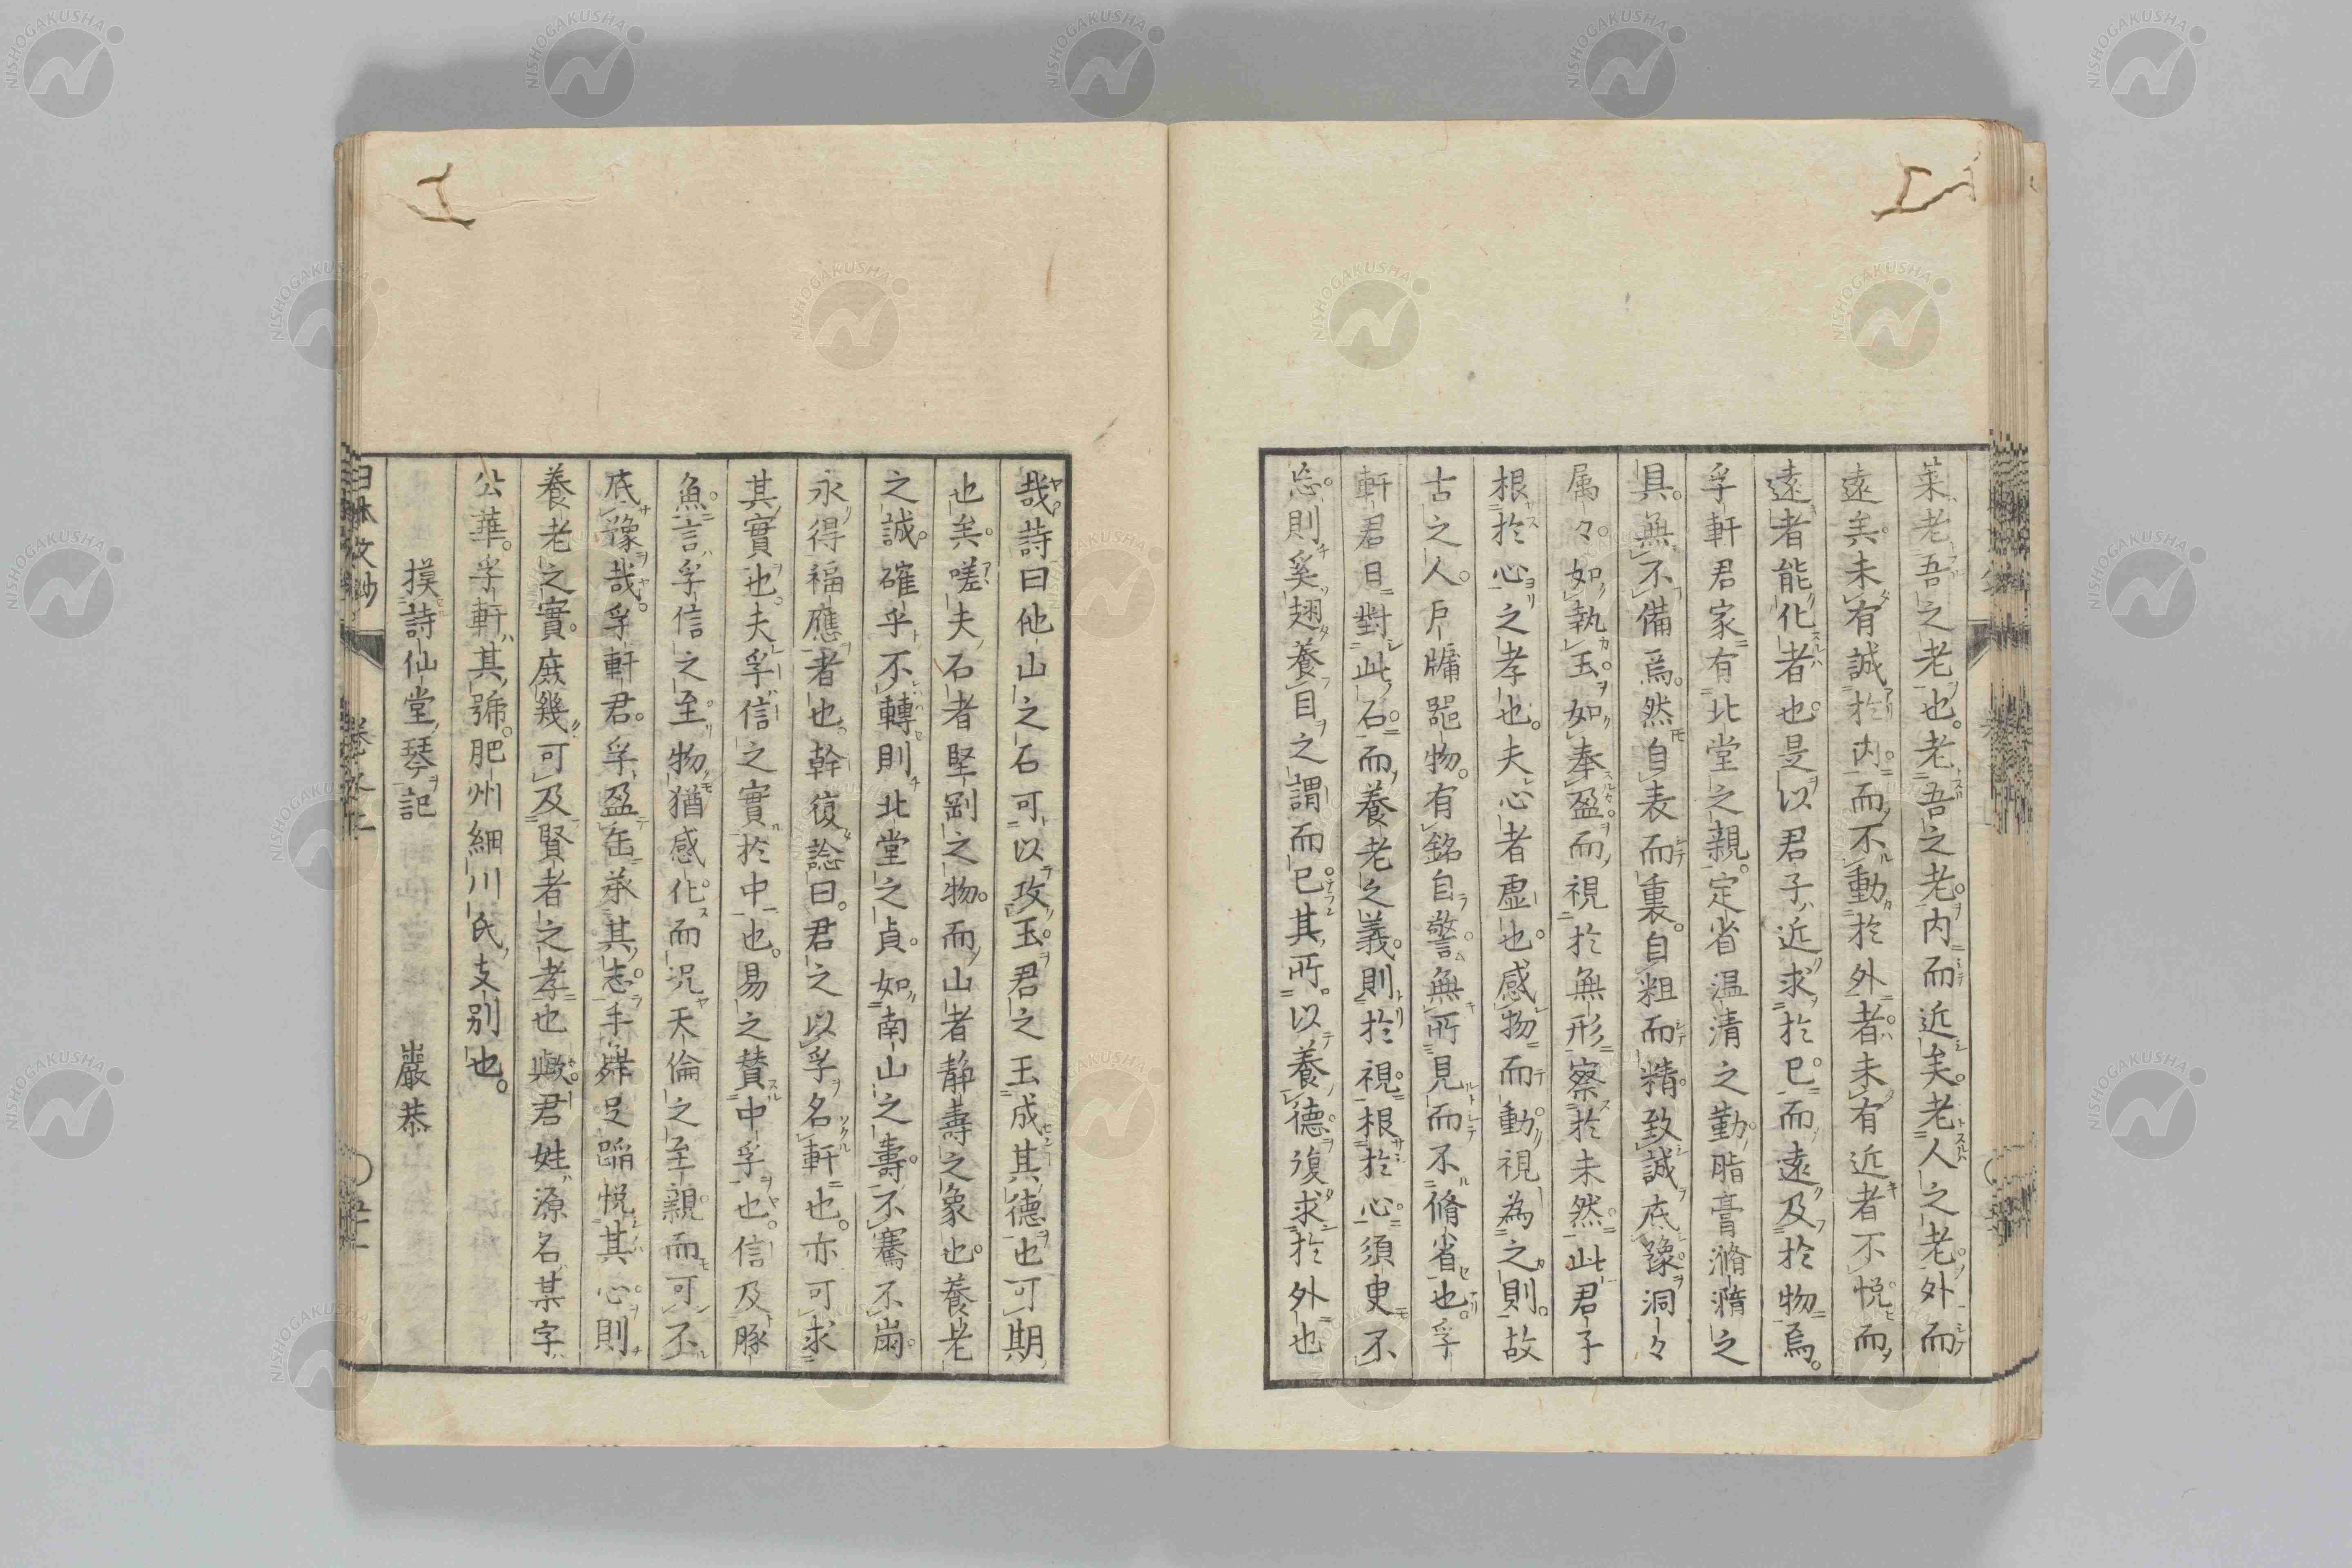 莱老吾之老也。老吾之老。内而近矣。老人之老。外而
遠矣。未有誠於内。而不動於外者。未有近者不悦而
遠者能化者也。是以君子近求於己。而遠及於物焉。
孚軒君家有北堂之親。定省温清之勤。脂膏滫瀡之
具。無不備焉。然自表而裏。自粗而精。致誠底豫。洞々
属々。如執玉。如奉盈。而視於無形。察於未然。此君子
根於心之孝也。夫心者虚也。感物而動。視為之則。故
古之人。戶牖噐物。有銘自警。無所見而不脩省也。孚
軒君日對此石。而養老之義。則於視。根於心。須臾不
忘。則奚翅養目之謂而已。其所以養德。復求於外也
哉。詩曰他山之石可以攻玉。君之玉成其德也可期
也矣。嗟夫石者堅剛之物。而山者静壽之象也。養老
之誠。確乎不轉。則北堂之貞。如南山之壽。不騫不崩。
永得福應者也。幹復諗曰。君之以孚名軒也。亦可求
其實也。夫孚信之實於中也。易之賛中孚也。信及豚
魚。言孚信之至。物猶感化。而况天倫之至親而可不
底豫哉。孚軒君。孚盈缶。承其志。手舞足蹈。悦其心。則
養老之實。庶幾可及賢者之孝也歟。君姓源名某字
公華。孚軒其號。肥州細川氏支別也。
摸詩仙堂琴記　　巖恭